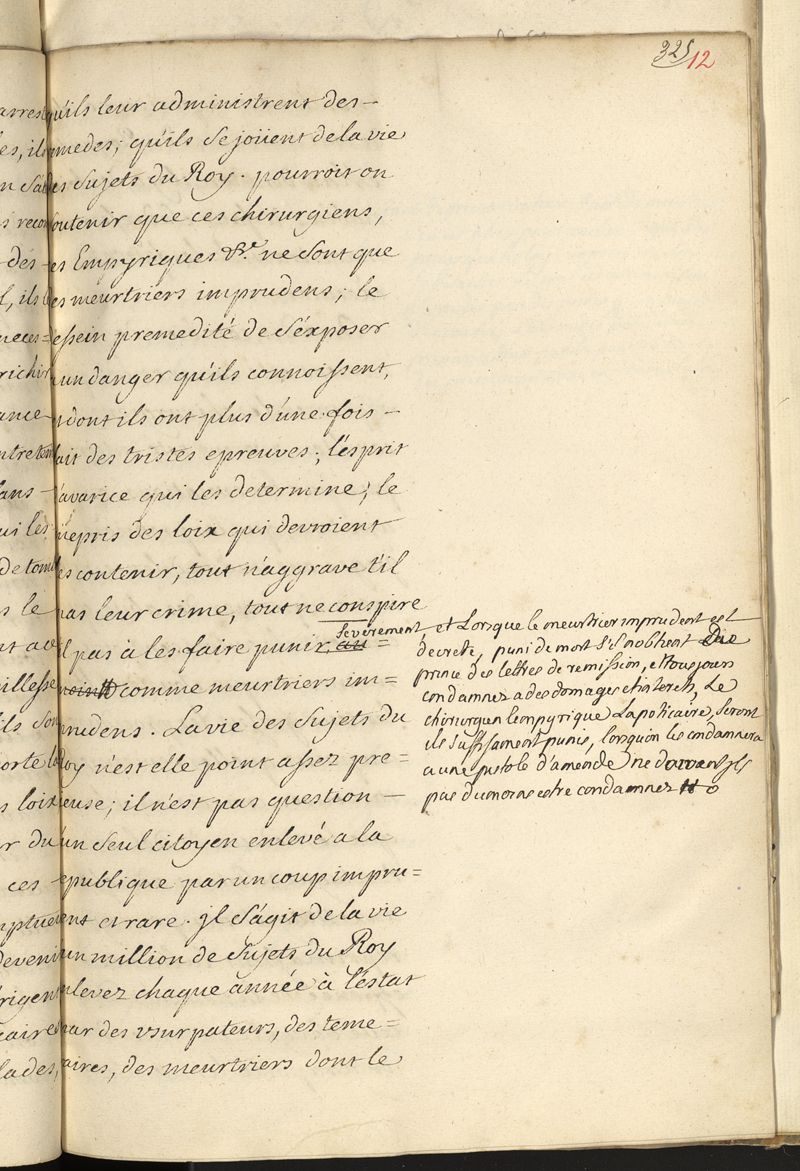 325
12
qu'ils leur administrent des-
medes; qu'ils se joüent de la vie
des Sujets du Roy. pourroit on
soutenir que ces chirurgiens,
ces Empyriques &c. ne sont que
des meurtriers imprudens; le
dessein premedité de s'éxposer
a un danger qu'ils connoissent,
et dont ils ont plus d'une fois -
fait des tristes epreuves; l'esprit
d'avarice qui les determine; le
mepris des loix qui devroient
les contenir, tout n'aggrave t'il
pas leur crime, tout ne conspire
il pas à les faire punir, severement au=
moins # comme meurtriers im=
prudens. La vie des Sujets du
Roy n'est elle point assez pre=
cieuse; il n'est pas question -
d'un seul citoyen enlevé a la
republique par un coup impru=
dent et rare. jl s'agit de la vie
d'un million de Sujets du Roy
enlevez chaque année à l'estat
par des vsurpateurs, des teme=
raires, des meurtriers dont le
et Lorsque le meurtrier imprudent est
decreté, puni de mort s'il n'obtient du
prince des lettres de remission, et tousjours
condamnez a des domages et interets, Le
chirurgien lempyrique Lapoticaire, seront
ils suffisament punis, lorsquon les condamnera
a une pistole d'amende ne doivent jls
pas du moins estre condamnez #
arrest
es, ils
n sa
s recon
des -
l, ils
neces=
richir
ance
ntreten
ans -
ui les
de tom
s le
nt a ce
illesse
ils son
orte
s loix
r du
ces
mptue
deveni
rigent
caire
lades,